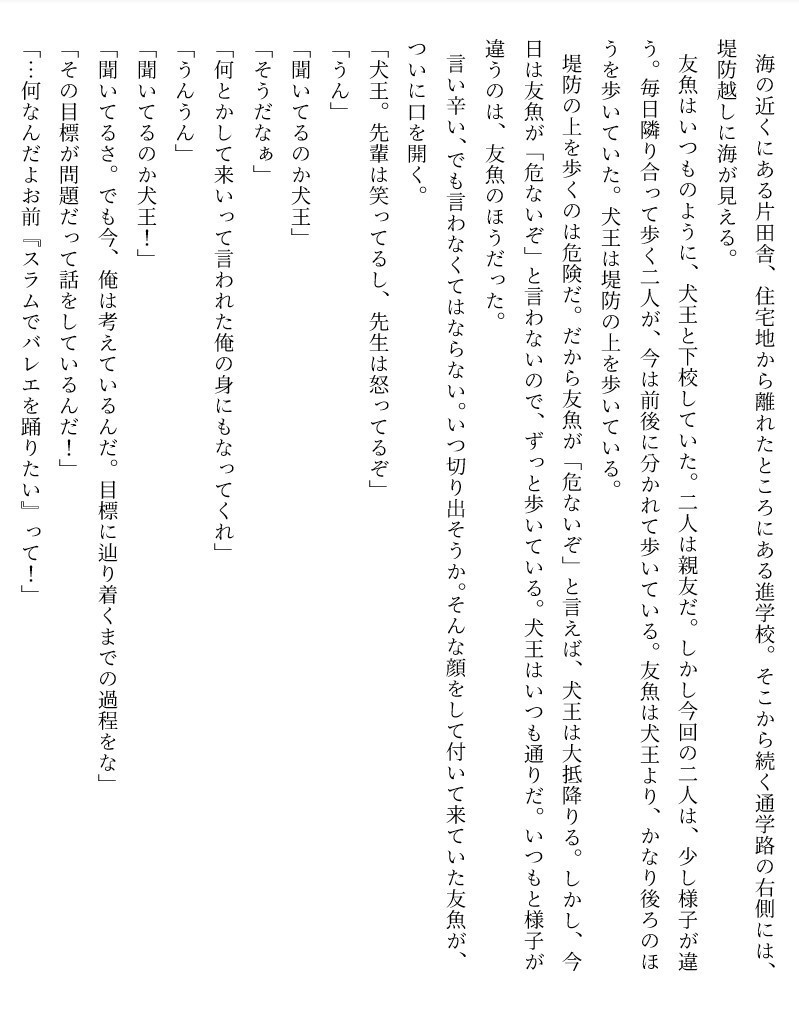 海の近くにある片田舎、住宅地から離れたところにある進学校。そこから続く通学路の右側には、
堤防越しに海が見える。
友魚はいつものように、犬王と下校していた。二人は親友だ。しかし今回の二人は、少し様子が違
う。毎日隣り合って歩く二人が、今は前後に分かれて歩いている。友魚は犬王より、かなり後ろのほ
うを歩いていた。犬王は堤防の上を歩いている。
堤防の上を歩くのは危険だ。だから友魚が「危ないぞ」と言えば、犬王は大抵降りる。しかし、今
日は友魚が「危ないぞ」と言わないので、ずっと歩いている。犬王はいつも通りだ。いつもと様子が
違うのは、友魚のほうだった。
言い辛い、でも言わなくてはならない。いつ切り出そうか。そんな顔をして付いて来ていた友魚が、
ついに口を開く。
「犬王。先輩は笑ってるし、先生は怒ってるぞ」
「うん」
「聞いてるのか犬王」
「そうだなぁ」
「何とかして来いって言われた俺の身にもなってくれ」
「うんうん」
「聞いてるのか犬王！」
「聞いてるさ。でも今、俺は考えているんだ。目標に辿り着くまでの過程をな」
「その目標が問題だって話をしているんだ！」
「…何なんだよお前『スラムでバレエを踊りたい』って！」